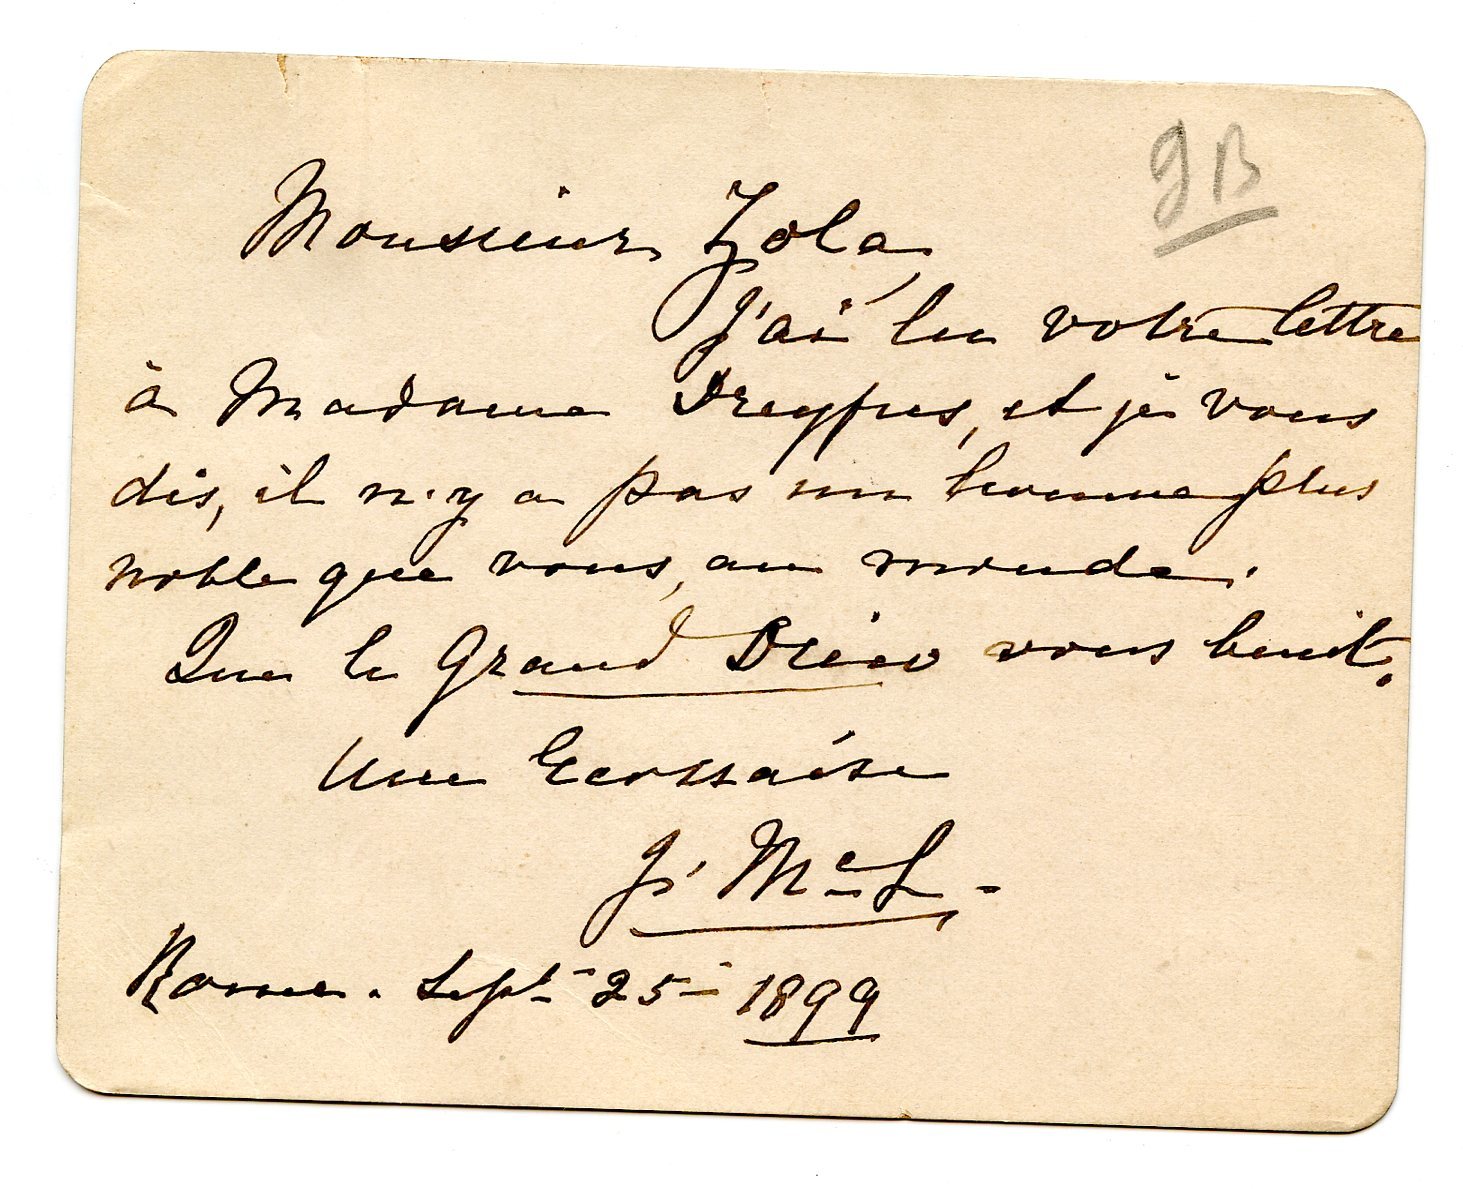 GB
Monsieur Zola,
J'ai lu votre lettre
à Madame Dreyfus, et je vous
dis, il n'y a pas un homme plus
noble que vous, au monde.
Que le Grand Dieu vous benit.
Une Ecossaise
J. McL-
Rome. Sept- 25- 1899